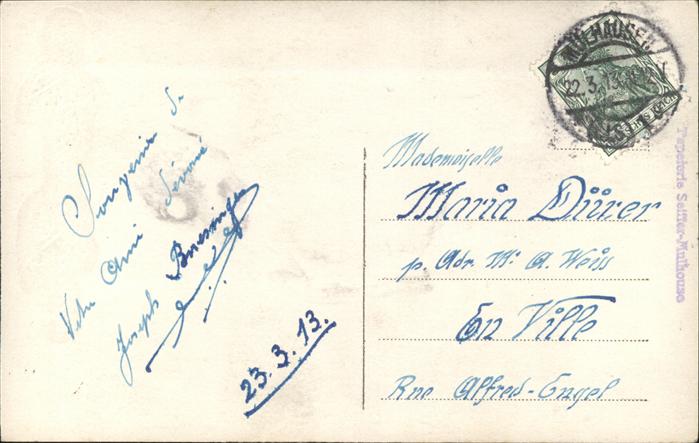 Souvenir de
Votre Ami dévoué
Joseph
23.3.13.
MÜLHAUSEN
22.3.13.
Mademoiselle
Maria Dürer
p. Adr. Mr. A. Weiss
En Ville
Rue Alfred-Engel
Tapeterie Seiffter-Mulhouse